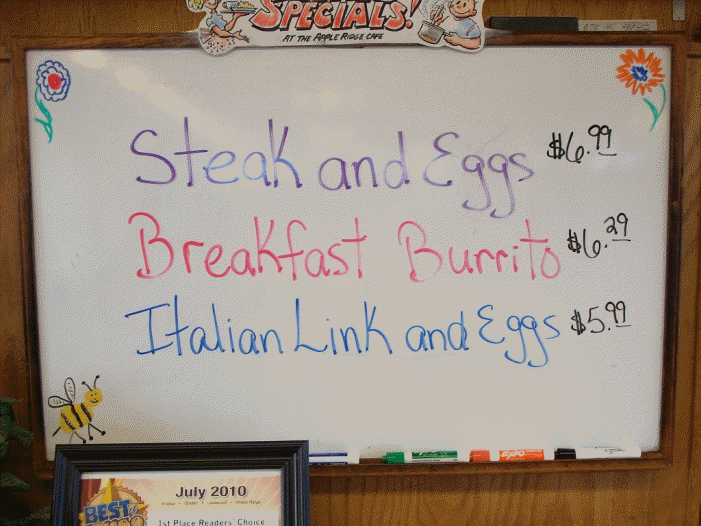 SPECIALS!
AT THE APPLE RIDGE CAFE
Steak and Eggs $6.99
Breakfast Burrito $6.29
Italian Link and Eggs $5.99
EXPO
July 2010
BEST
1st Place Readers' Choice